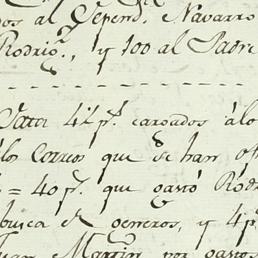 os al Depend. Navarro
Rodrig.ª, y 100 al Padre
41 p.s cargados á lo
los Correos que se han
= 40 p.s que gastó Rodr
busca de generos, y 4 p.s
Juan Martin por gastos